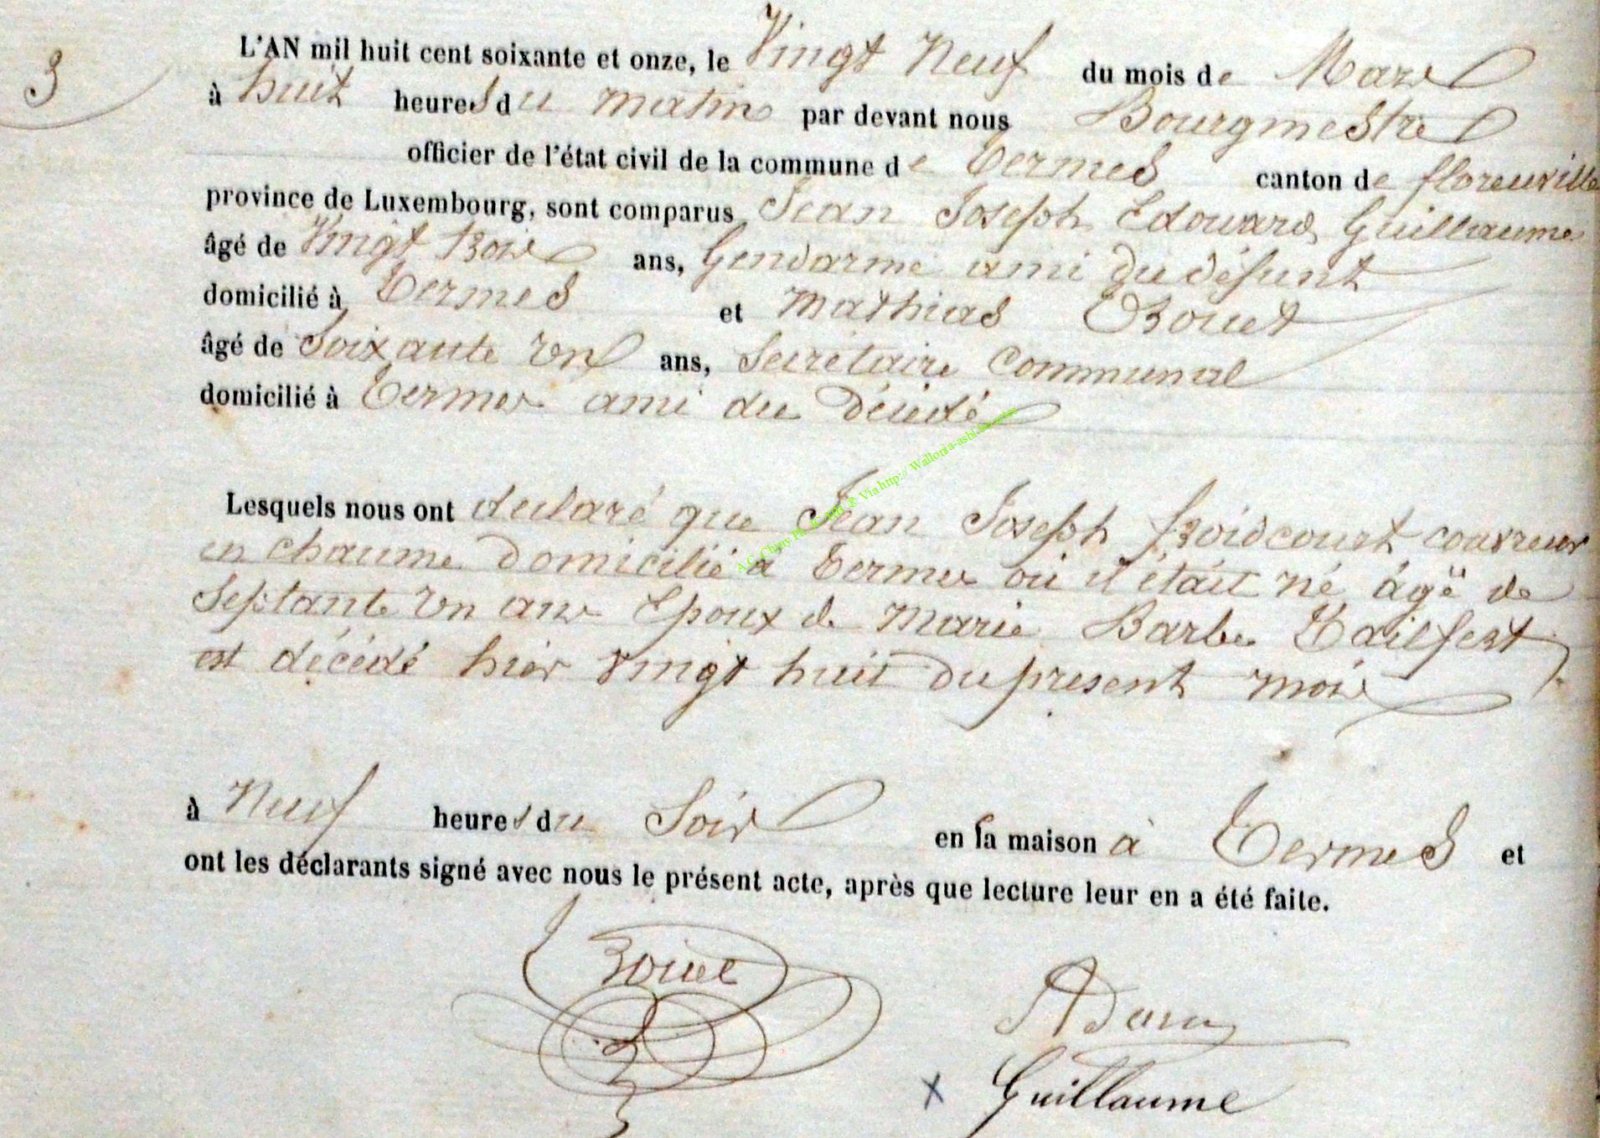 3
L'AN mil huit cent soixante et onze, le Vingt Neuf du mois de Mars
à huit heures du matin par devant nous Bourgmestre
officier de l'état civil de la commune de Termes canton de florenville
province de Luxembourg, sont comparus Jean Joseph Edouard Guillaume
âgé de Vingt trois ans, Gendarme ami du défunt
domicilié à Termes et Mathias Bouet
âgé de Soixante un ans, Secrétaire Communal
domicilié à Termes ami du décédé
Lesquels nous ont declaré que Jean Joseph froidcourt couvreur
en chaume domicilié à Termes où il était né âgé de
Septante un ans Epoux de Marie Barbe Tailfert
est décédé hier vingt huit du present mois
à Neuf heures du Soir en sa maison à Termes et
ont les déclarants signé avec nous le présent acte, après que lecture leur en a été faite.
Bouet
Adam
x Guillaume